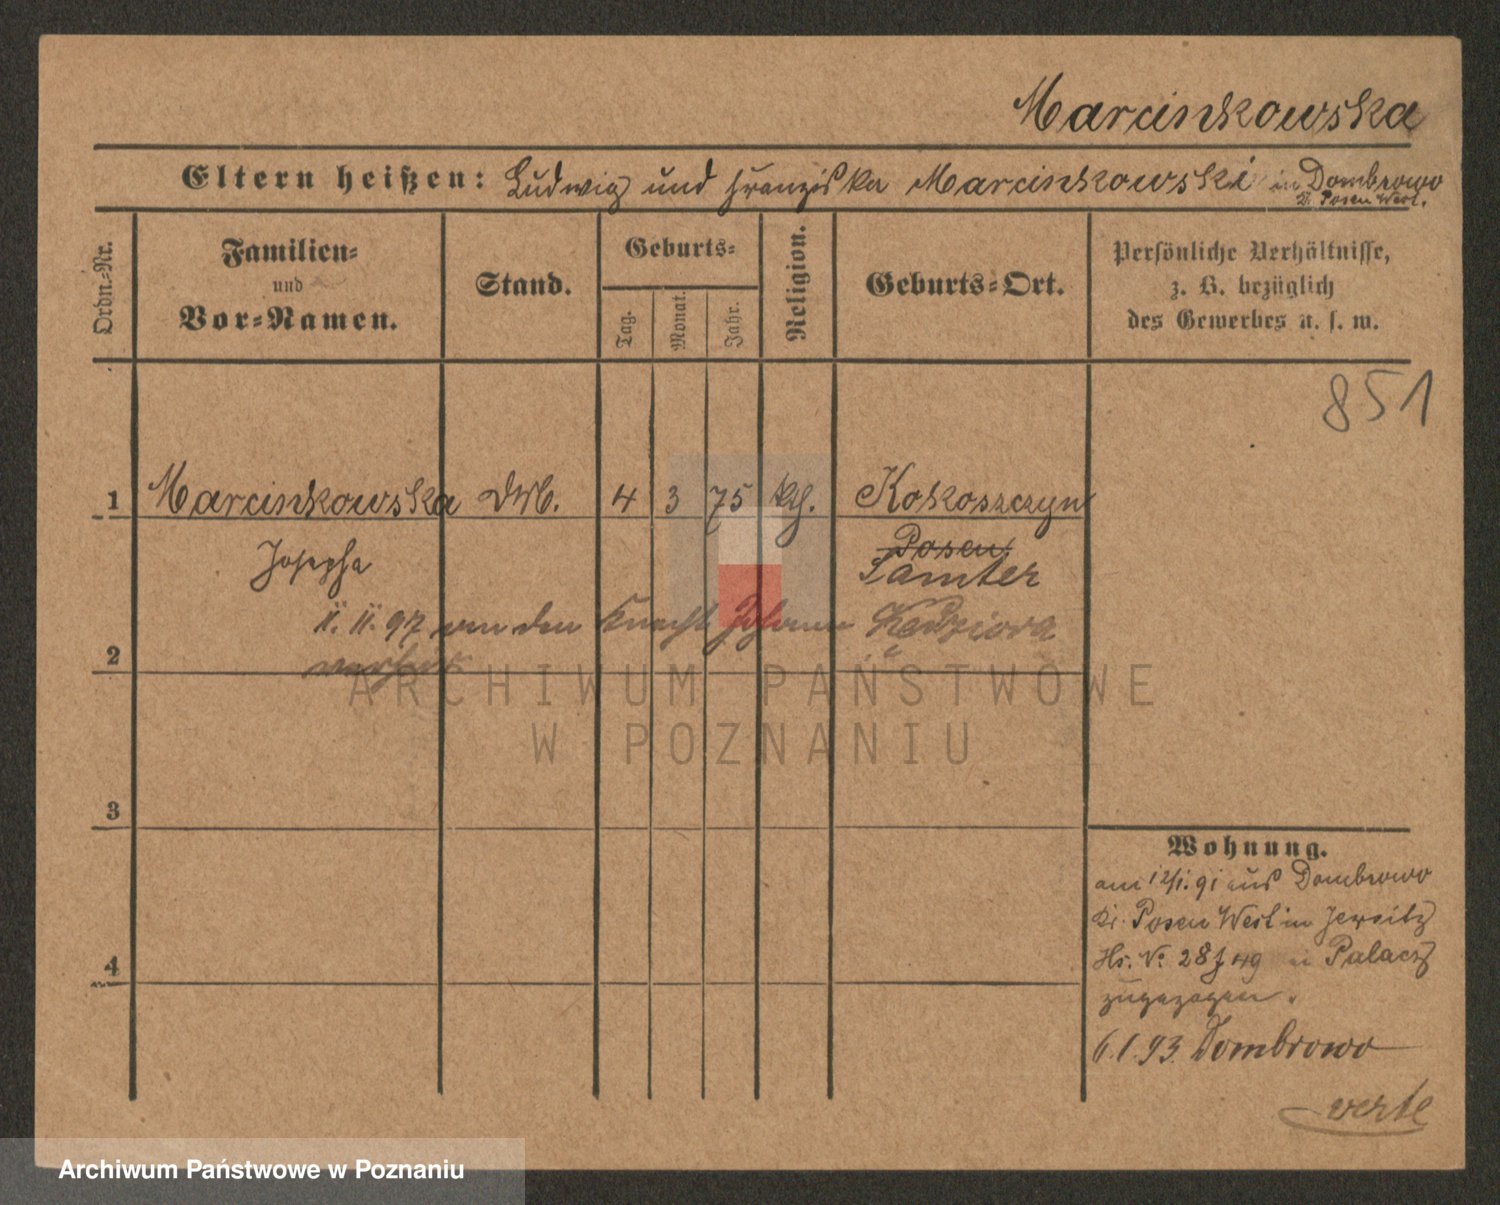 Marcinkowska
Eltern heißen: Ludwig und Franziska Marcinkowski in Dombrowo
Kr. Posen West.
Ordn.-Nr.
Familien-
und
Vor-Namen.
Stand.
Geburts-
Tag.
Monat.
Jahr.
Religion.
Geburts-Ort.
Persönliche Verhältnisse,
z. B. bezüglich
des Gewerbes u. s. w.
851
1 Marcinkowska 4 3 75 kth. Kokoszczyn
Josepha Posen
Samter
11. 11. 97 an den Knecht Johann Kędziora
2 verheir.
3
4
Wohnung.
am 12/1. 91 aus Dombrowo
Kr. Posen West in Jersitz
Hs. No 28 J 49 Palacz
zugezogen.
6.1.93. Dombrowo
verte
ARCHIWUM PAŃSTWOWE
W POZNANIU
Archiwum Państwowe w Poznaniu